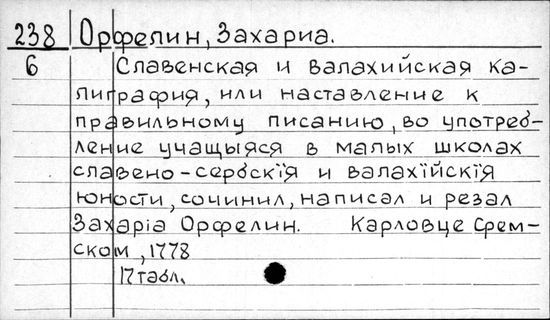 238 Орфелин, Захариа.
6 Славенская и валахийская ка-
лиграфия, или наставление к
правильному писанию, во употреб-
ление учащыяся в малых школах
славено-сербскїя и валахїйскїя
юности, сочинил, написал и резал
Захаріа Орфелин. Карловце Срем-
ском, 1778
17 табл.